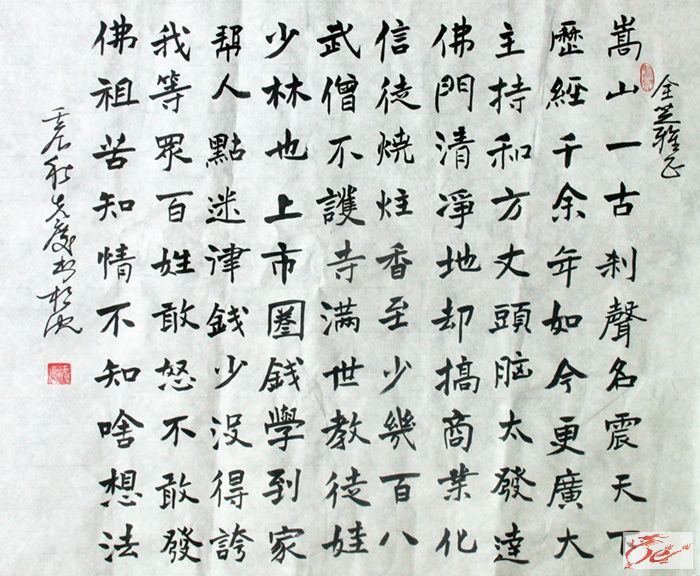 雅正
嵩山一古刹聲名震天下
歷經千余年如今更廣大
主持和方丈頭脑太發達
佛門清淨地却搞商業化
信徒燒炷香至少幾百八
武僧不護寺滿世教徒娃
少林也上市圈錢學到家
幫人點迷津錢少没得誇
我等眾百姓敢怒不敢發
佛祖苦知情不知啥想法